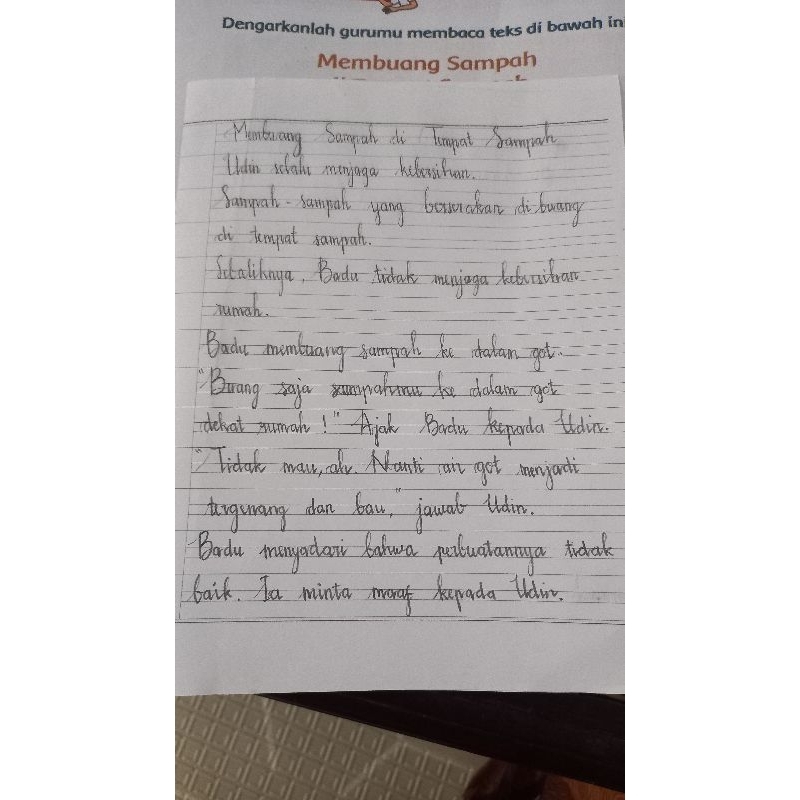 Dengarkanlah gurumu membaca teks di bawah in
Membuang Sampah
Membuang Sampah di Tempat Sampah
Udin selalu menjaga kebersihan.
Sampah-sampah yang berserakan di buang
di tempat sampah.
Sebaliknya, Badu tidak menjaga kebersihan
rumah.
Badu membuang sampah ke dalam got.
"Buang saja sampahmu ke dalam got
dekat rumah!" Ajak Badu kepada Udin.
"Tidak mau, ah. Nanti air got menjadi
tergenang dan bau," jawab Udin.
Badu menyadari bahwa perbuatannya tidak
baik. Ia minta maaf kepada Udin.